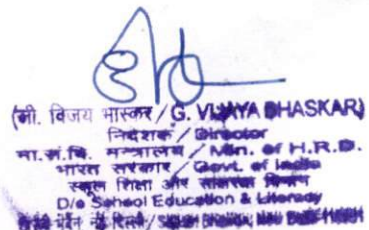 (जी. विजय भास्कर / G. VIJAYA BHASKAR)
निदेशक / Director
मा.सं.वि. मन्त्रालय / Min. of H.R.D.
भारत सरकार / Govt. of India
स्कूल शिक्षा और साक्षरता विभाग
D/o School Education & Literacy
नई दिल्ली /